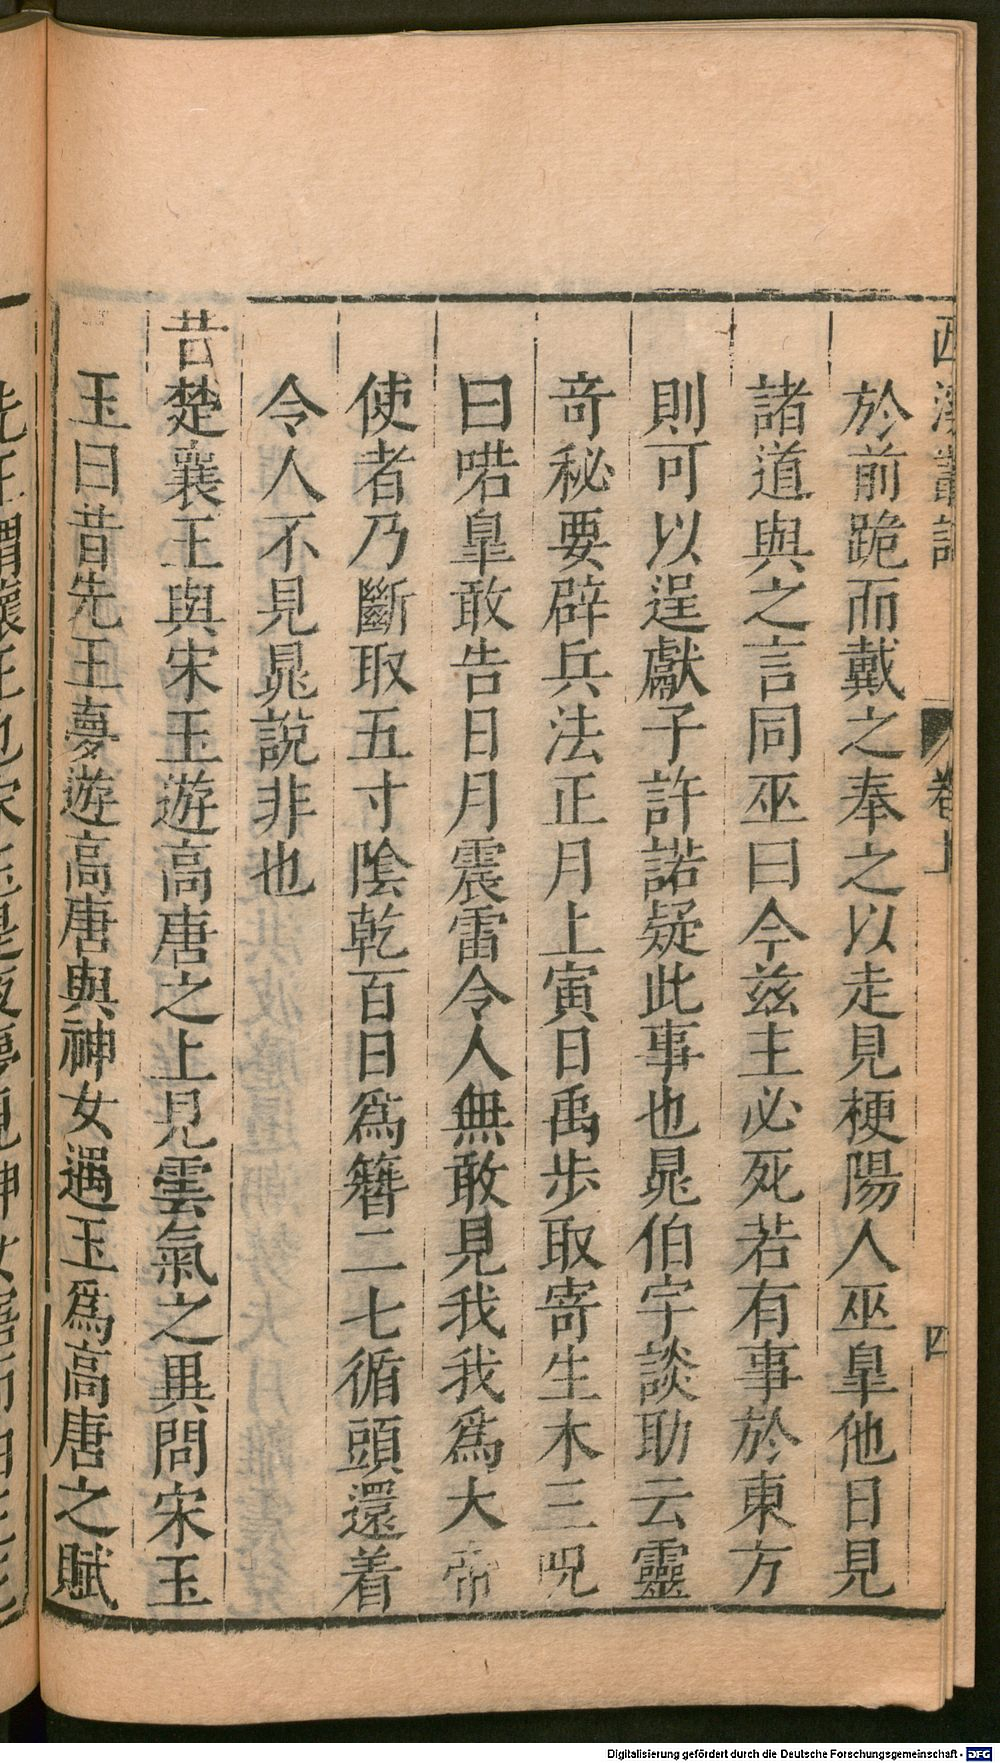 西溪叢語 卷上 四
於前跪而戴之奉之以走見梗陽人巫臯他日見
諸道與之言同巫曰今兹主必死若有事於東方
則可以逞獻子許諾疑此事也晁伯宇談助云靈
竒秘要辟兵法正月上寅日禹步取寄生木三呪
曰喏臯敢告日月震雷令人無敢見我我爲大帝
使者乃斷取五寸陰乾百日爲簪二七循頭還着
令人不見晁說非也
昔楚襄王與宋玉遊高唐之上見雲氣之異問宋玉
玉曰昔先王夢遊高唐與神女遇玉爲高唐之賦
Digitalisierung gefördert durch die Deutsche Forschungsgemeinschaft - DFG